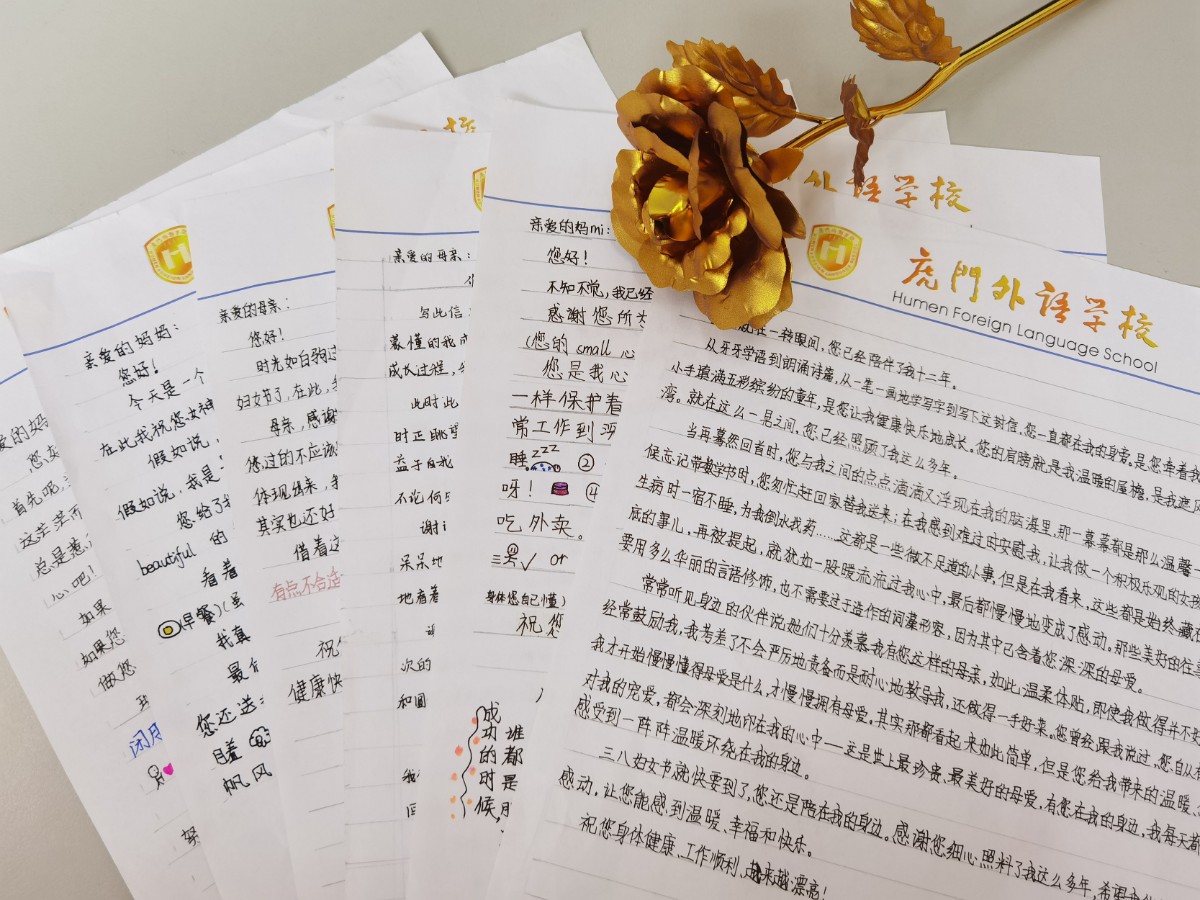 亲爱的妈妈:
您好!
今天是一个
在此我祝您女神
假如说,
假如说,我是
您给了我
beautiful 的
看着
(早餐)(蛋
我真
最
您还送
帆风
首先呢,
总是惹
心吧!
如果
如果您
做您
闭月
亲爱的母亲:
您好!
时光如白驹过
妇女节了,在此,
母亲,感谢
您过的不应该
体现出来,
其实也还好
借着这
有点不合适
祝
健康快
亲爱的母亲:
写此信
懵懂的我
成长过程,
此时此
时正眺望
益于自我
不论何
谢
呆呆地
地看着
次的
和圆
我
亲爱的妈mi:
您好!
不知不觉,我已经
感谢您所
(您的 small 心
您是我心
一样保护者
常工作到深
睡。zzz ②
呀! ④
吃外卖。
or
身体您自己懂)
祝您
成功的时候,
谁都是朋
外语学校
虎門外语学校
Humen Foreign Language School
就在一转眼间,您已经陪伴了我十二年。
从牙牙学语到朗诵诗篇,从一笔一画地学写字到写下这封信,您一直都在我的身旁。是您牵着我
小手填满五彩缤纷的童年,是您让我健康快乐地成长。您的肩膀就是我温暖的屋檐,是我避风
湾。就在这么一晃之间,您已经照顾了我这么多年。
当再蓦然回首时,您与我之间的点点滴滴又浮现在我的脑海里,那一幕幕都是那么温馨
候忘记带数学书时,您匆忙赶回家替我送来;在我感到难过时安慰我,让我做一个积极乐观的女孩
生病时一宿不睡,为我倒水找药……这都是一些微不足道的小事,但是在我看来,这些都是始终藏在
底的事儿,再被提起,就犹如一股暖流流过我心中,最后都慢慢地变成了感动。那些美好的往事
要用多么华丽的言语修饰,也不需要过于造作的词藻形容,因为其中已含着您深深的母爱。
常常听见身边的伙伴说她们十分羡慕我有您这样的母亲,如此温柔体贴,即使我做得并不好
经常鼓励我,我考差了不会严厉地责备而是耐心地教导我,还做得一手好菜。您曾经跟我说过,您自从
我才开始慢慢懂得母爱是什么,才慢慢拥有母爱。其实那都看起来如此简单,但是您给我带来的温暖、
对我的宠爱,都会深刻地印在我的心中——这是世上最珍贵、最美好的母爱,有您在我的身边,我每天都
感受到一阵阵温暖环绕在我的身边。
三八妇女节就快要到了,您还是陪在我的身边。感谢您细心照料了我这么多年,希望
感动,让您能感到温暖、幸福和快乐。
祝您身体健康、工作顺利、越来越漂亮!